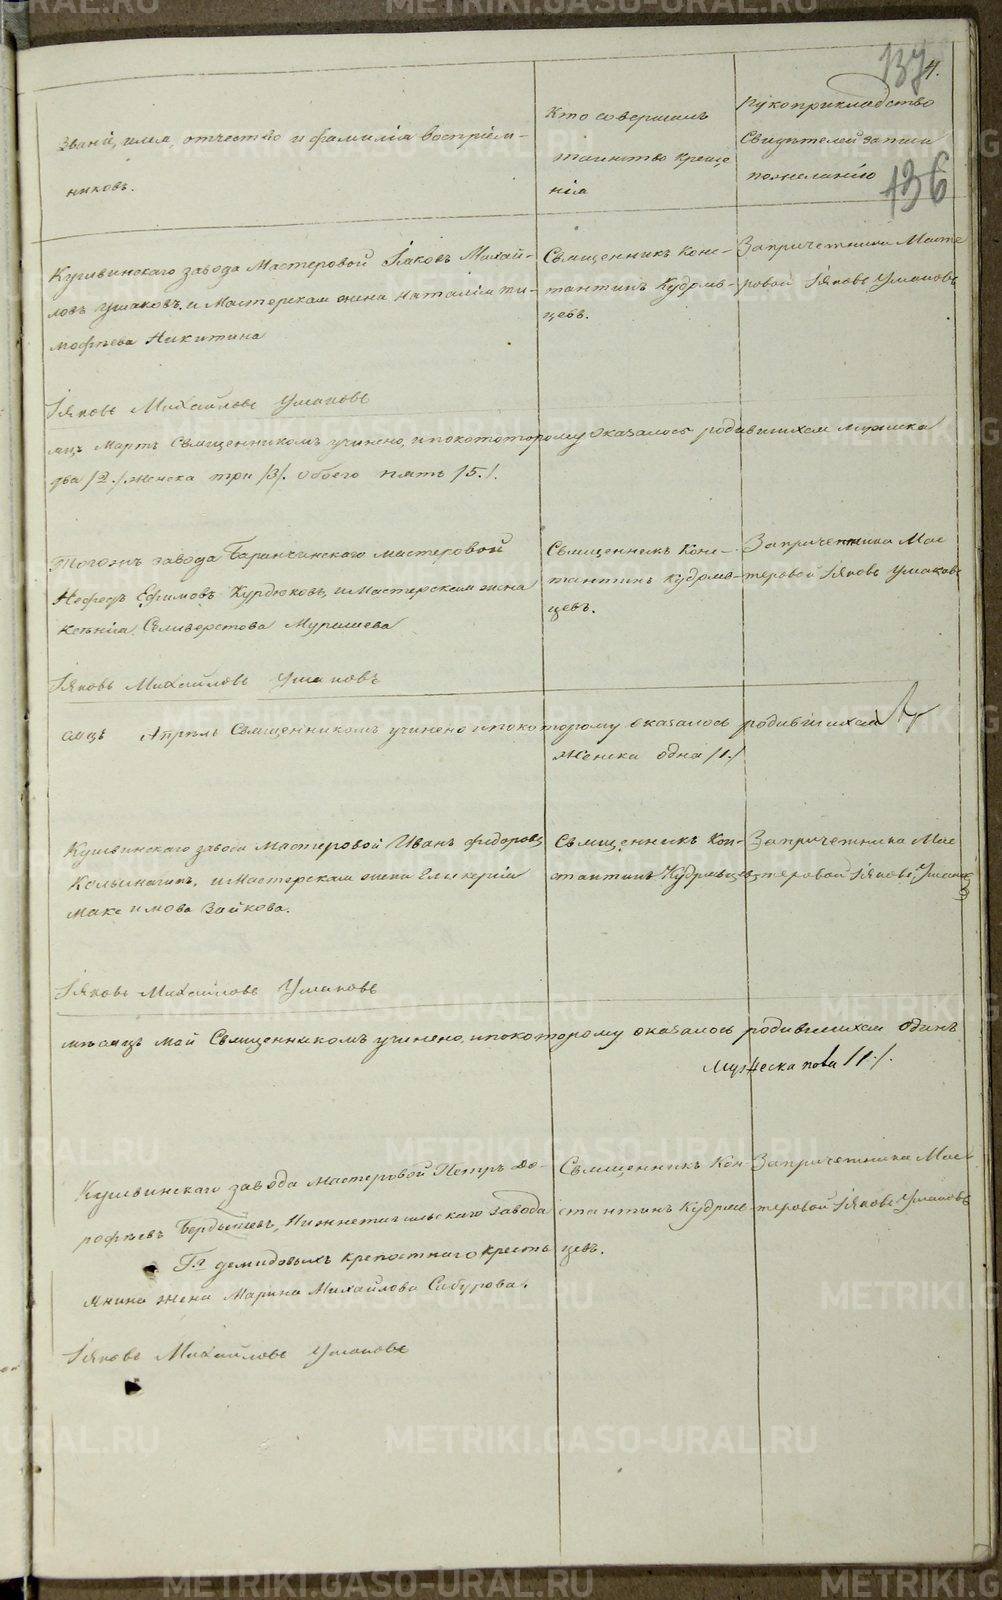 137
4.
136
Званіе, имя, отчество и фамилія воспріем-
никовъ.
Кто совершалъ
таинство креще
нія
Рукоприкладство
Свидѣтелей записи
по желанію
Кушвинскаго завода Мастеровой Іаковъ Михай-
ловъ Ушаковъ, и Мастерская жена Наталія Ти-
мофѣева Никитина
Священникъ Конс-
тантинъ Кудряв-
цевъ.
За причетника Масте
ровой Іяковъ Ушаковъ
Іяковъ Михайловъ Ушаковъ
мцъ Мартъ Священникомъ учинено, и по кототорому оказалось родившихся мужска
два /2./ женска три /3/. Обоего пять /5./.
Тогожъ завода Баранчинскаго мастеровой
Нефедъ Ефимовъ Курдюковъ, и Мастерская жена
Ксенія Селиверстова Мурашева
Священникъ Конс-
тантинъ Кудряв-
цевъ.
За причетника Мас
теровой Іяковъ Ушаковъ
Іяковъ Михайловъ Ушаковъ
сяцъ Апрѣль Священникомъ учинено и по которому оказалось родившихся
женска одна /1./
Кушвинскаго завода Мастеровой Иванъ Федоровъ
и Мастерская жена Гликерія
Максимова Зайкова.
Священникъ Кон-
стантинъ Кудрявцевъ
За причетника Мас
теровой Іяковъ Ушаковъ
Іяковъ Михайловъ Ушаковъ
мѣсяцъ Май Священникомъ учинено, и по которому оказалось родившихся одинъ
Мужеска пола /1./.
Кушвинскаго завода мастеровой Петръ До-
рофѣевъ Бердышевъ, Нижнетагильскаго завода
Г.г. Демидовыхъ крѣпостнаго кресть
янина жена Марина Михайлова Сабурова.
Священникъ Кон-
стантинъ Кудряв
цевъ.
За причетника Мас
теровой Іяковъ Ушаковъ
Іяковъ Михайловъ Ушаковъ
METRIKI.GASO-URAL.RU